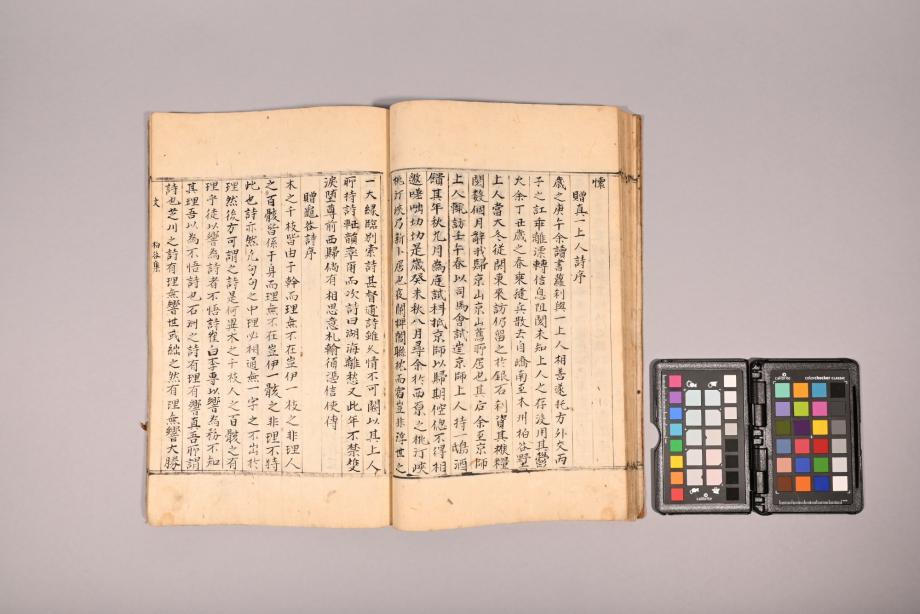 懷
贈眞一上人詩序
歲之庚午余讀書蘿利與一上人相善遂托方外交丙
子之訌乖離漂轉信息阻閡未知上人之存没用其鬱
火余丁丑歲之春棄縫兵散去自嶠南至木州栢谷墅
上人當大冬從關東來訪仍留之於銀石利資其糗糧
閱數個月辭我歸京山京山舊所居也其后余至京師
上人輒訪壬午春以司馬會試㞷京師上人持一鴟酒
饋其年秋九月爲庭試科抵京師以歸期倥偬不得相
邀嗟咄切切是歲癸未秋八月尋余於西景之桃汀峽
桃汀峽乃新卜居也夜闌掛闥聯枕而宿豈非浮世之
一大緣臨别索詩甚督迺詩雖久情不可閼以其上人
所持詩軸韻率爾而次詩曰湖海離愁又此年不禁雙
淚墮尊前西歸倘有相思意札翰須憑信使傳
贈龜谷詩序
木之千枝皆由于幹而理無不在豈伊一枝之非理人
之百骸皆係于身而理無不在豈伊一骸之非理不特
此也詩亦然凡句句之中理必相通無一字之不出於
理然後方可謂之詩是何異木之千枝人之百骸之有
理乎徒以響爲詩者不悟詩崔白李專響爲務不知
其理吾以爲不悟詩也石洲之詩有理有響眞吾所謂
詩也芝川之詩有理無響世或絀之然有理無響大勝
文 栢谷集
calibrite
colorchecker CLASSIC
calibrite